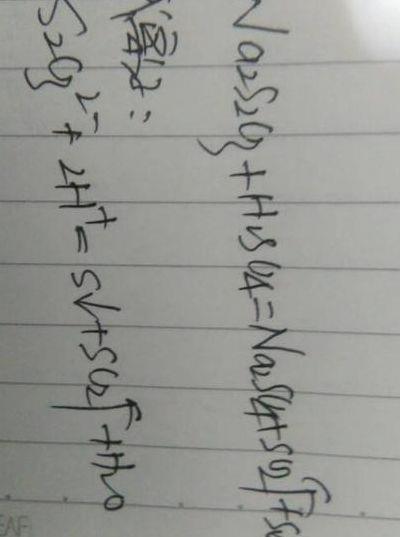 Na2S2O3+H2SO4=Na2SO4+SO2↑+S↓
离子:
S2O3²⁻+2H⁺=S↓+SO2↑+H2O